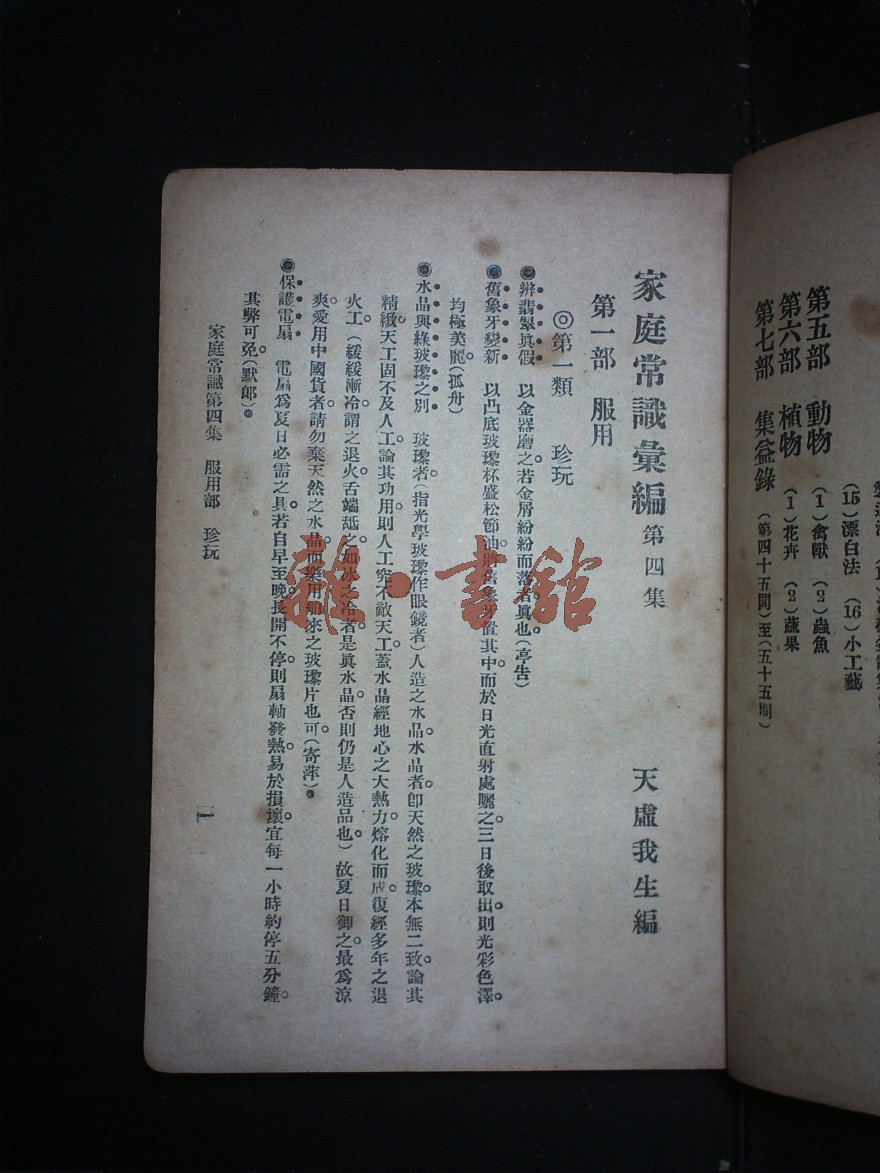 製造法
(15)漂白法 (16)小工藝
第五部 動物 (1)禽獸 (2)蟲魚
第六部 植物 (1)花卉 (2)蔬果
第七部 集益錄 (第四十五問)至(五十五問)
家庭常識彙編 第四集 天虛我生編
第一部 服用
◎第一類 珍玩
◉辨翡翠真假 以金器磨之。若金屑紛紛而落者真也。(亭告)
◉舊象牙變新 以凸底玻瓈杯盛松節油。將舊象牙置其中。而於日光直射處曬之。三日後取出。則光彩色澤。
均極美麗。(孤舟)
◉水晶與綠玻瓈之別 玻瓈者(指光學玻瓈作眼鏡者)人造之水晶。水晶者。卽天然之玻瓈。本無二致。論其
精緻。天工固不及人工。論其功用。則人工究不敵天工。蓋水晶經地心之大熱力熔化而成。復經多年之退
火工。(緩緩漸冷謂之退火。舌端舐之。如冰之冷者。是眞水晶。否則仍是人造品也)故夏日御之。最爲涼
爽。愛用中國貨者。請勿棄天然之水晶。而樂用舶來之玻瓈片也可。(寄萍)
◉保護電扇 電扇爲夏日必需之具。若自早至晚。長開不停。則扇軸發熱。易於損壞。宜每一小時約停五分鐘。
其弊可免。(默郎)
家庭常識第四集 服用部 珍玩
一
雜·書館